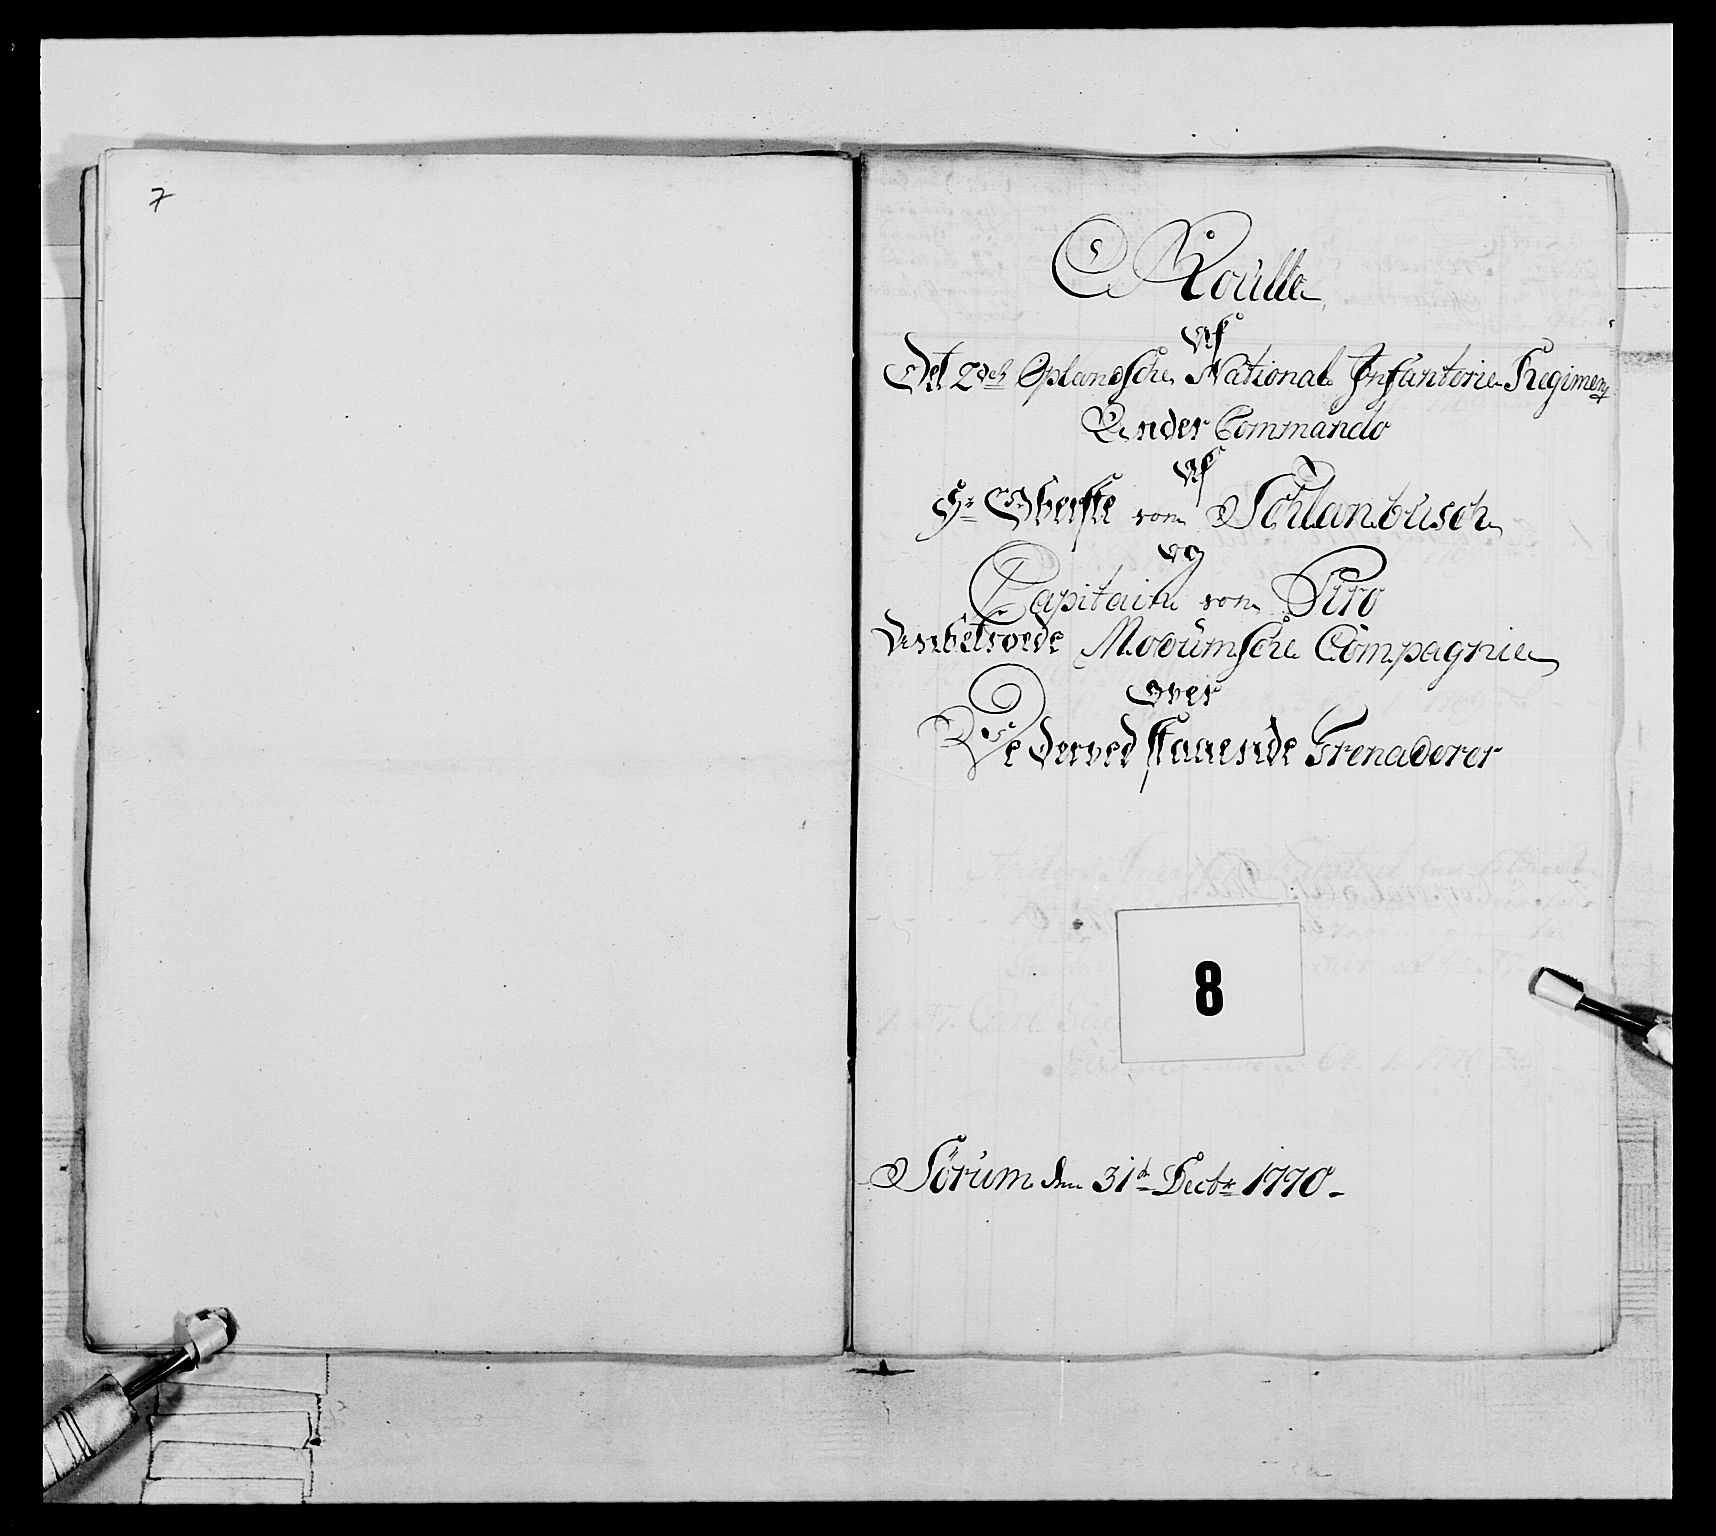 7
Roulle
Af
Det 2det Oplandsche National Infanterie Regiment
Under Commando
Af
Hr Oberste von Schlanbusch
og
Capitain von
Anbetroede Modumsche Compagnie
over
De derved staaende Grenaderer
8
Sörum den 31te Decbr 1770